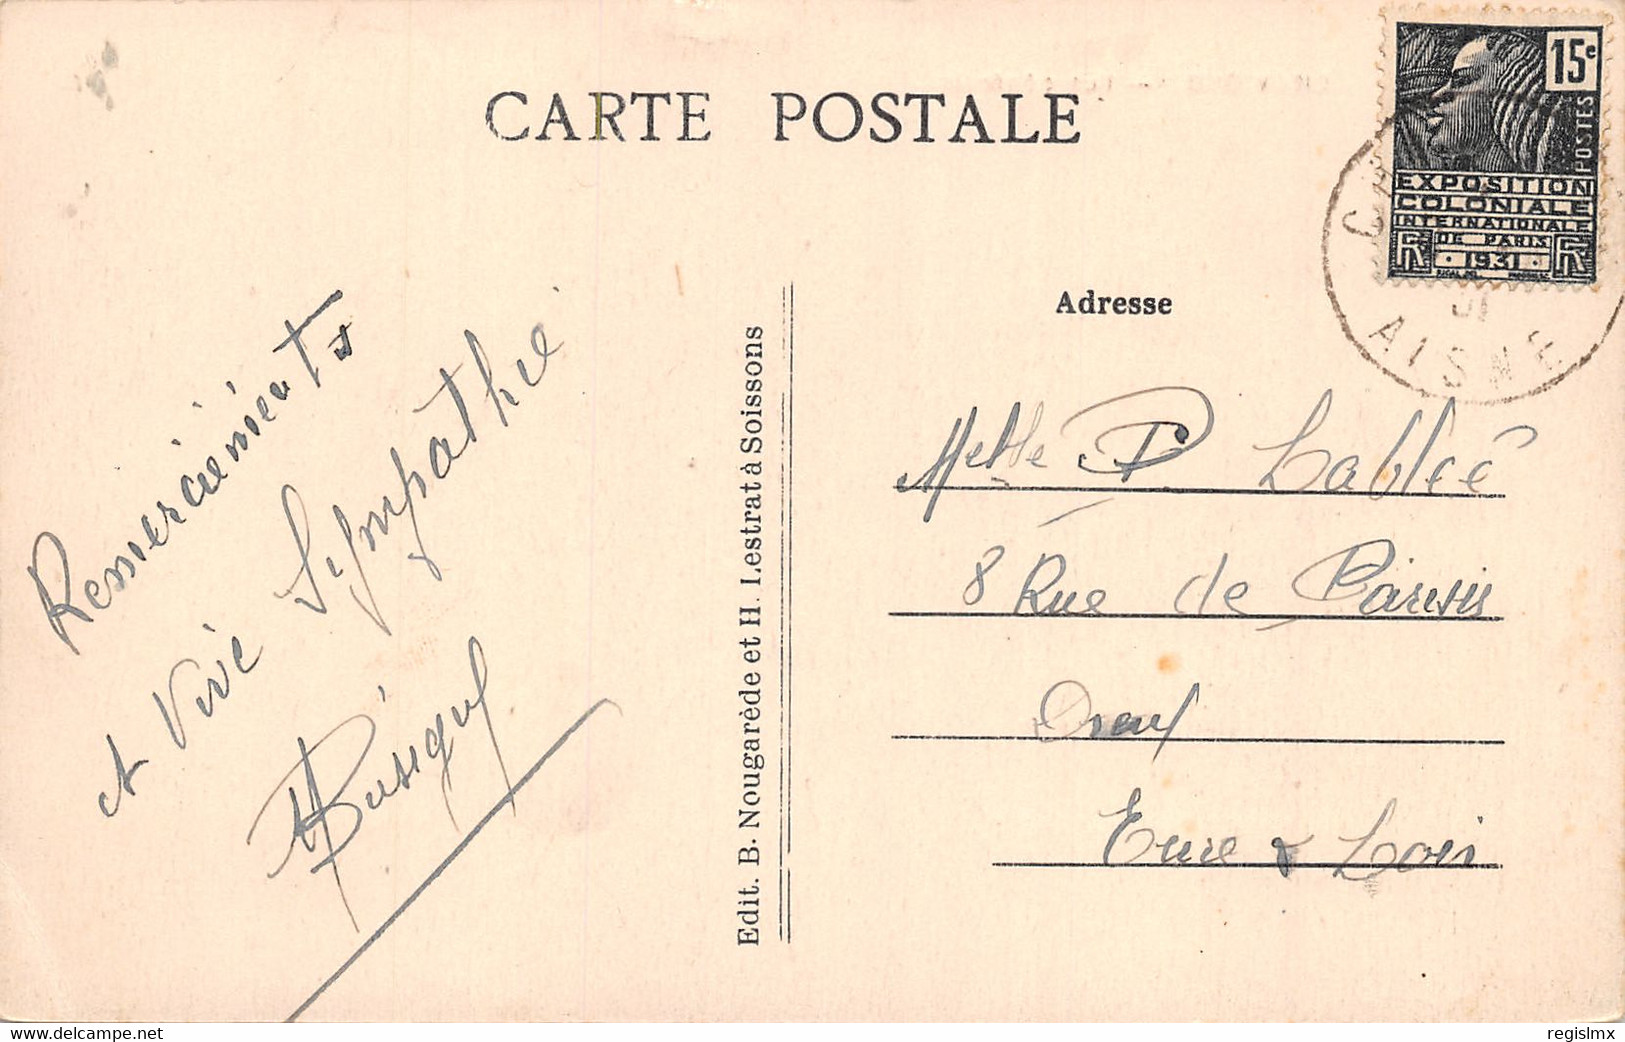 CARTE POSTALE
15c
POSTES
EXPOSITION
COLONIALE
INTERNATIONALE
DE PARIS
1931
RF RF
AISNE
Adresse
Remerciements
et Vive Sympathie
Edit. B. Nougarède et H. Lestrat à Soissons
Melle P Lablée
8 Rue de
Eure & Loir
www.delcampe.net
regislmx